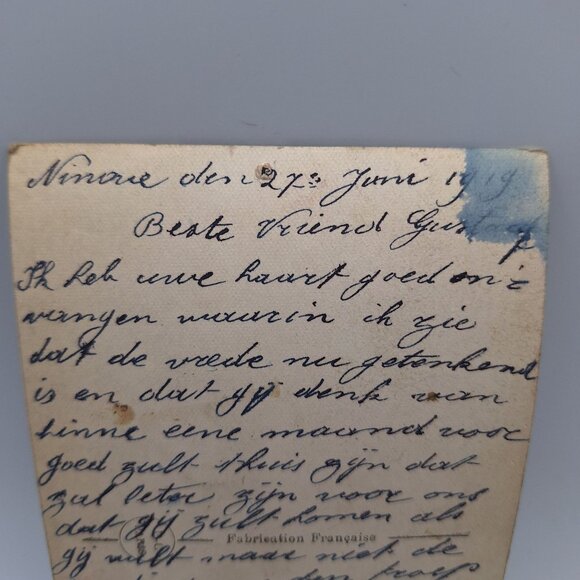 Ninove den 27s Juni 1919
Beste Vriend Gustaf
Ik heb uwe kaart goed ont
vangen waarin ik zie
dat de vrede nu getenkend
is en dat gij denk van
binne eene maand voor
goed zult thuis zijn dat
zal beter zijn voor ons
dat gij zult komen als
Fabrication Française
gij wilt maar niet de
den troep